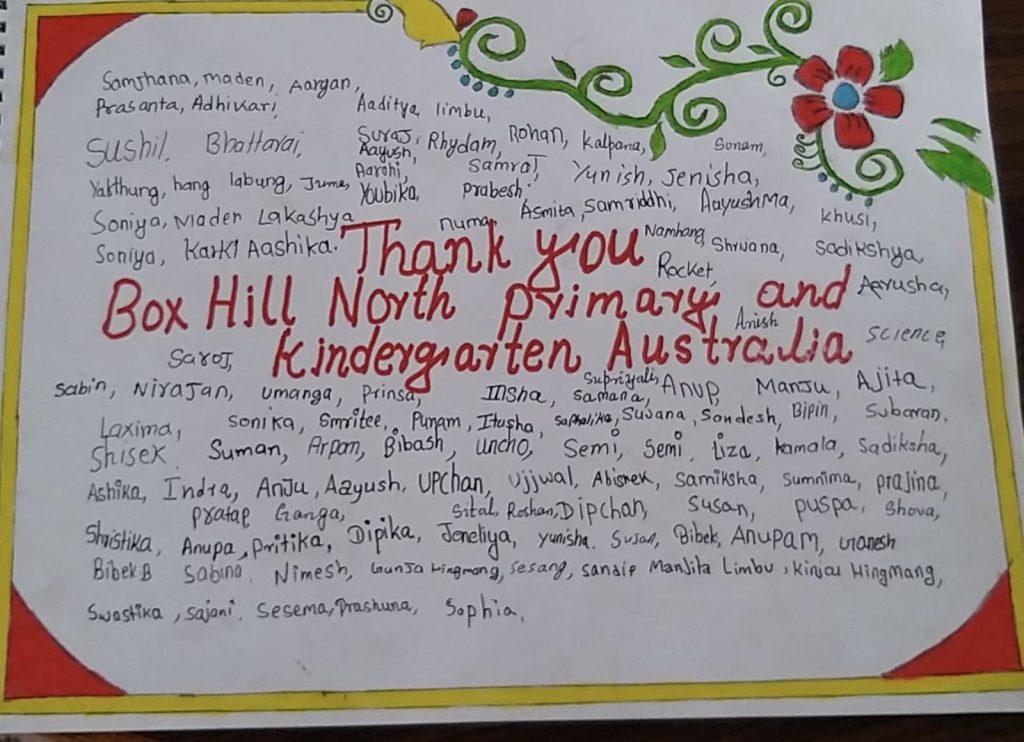 Samjhana, maden, Aargan,
Prasanta, Adhikari, Aaditya, limbu,
Sushil, Bhattarai, Suraj, Rhydam, Rohan, Kalpana, Sonam,
Aayush,
Yakthung, hang labung, Juma, Aarohi, Samraj, Yunish, Jenisha,
Youbika, Prabesh
Soniya, Maden Lakashya numa Asmita, Samriddhi, Aayushma, khusi,
Soniya, Karki Aashika. Namhang Shrijana, Sadikshya,
Thank you
Rocket, Aarusha,
Box Hill North primary and
Anish
Kindergarten Australia Science,
Saroj,
Sabin, Nirajan, umanga, Prinsa, Insha, Samana, Anup, Manju, Ajita,
Laxima, Sonika, Smritee, Punam, Itusha, Sujana, Sondesh, Bipin, Subaran.
Shisek. Suman, Arpan, Bibash, uncho, Semi, Semi, Liza, kamala, Sadiksha,
Ashika, Indra, Anju, Aayush, UPChan, Ujjwal, Abishek, Samiksha, Sumnima, prajina,
pratap Ganga, Sital, Roshan, Dipchan, Susan, puspa, Shova,
Shristika, Anupa, Pritika, Dipika, Jeneliya, yunisha. Susan, Bibek, Anupam, Ganesh
Bibek B Sabina. Nimesh, Gunja Hingmang, Sesang, Sandip Manjita Limbu, Kinjau Hingmang,
Swastika, Sajani. Sesema, Prashuna, Sophia,